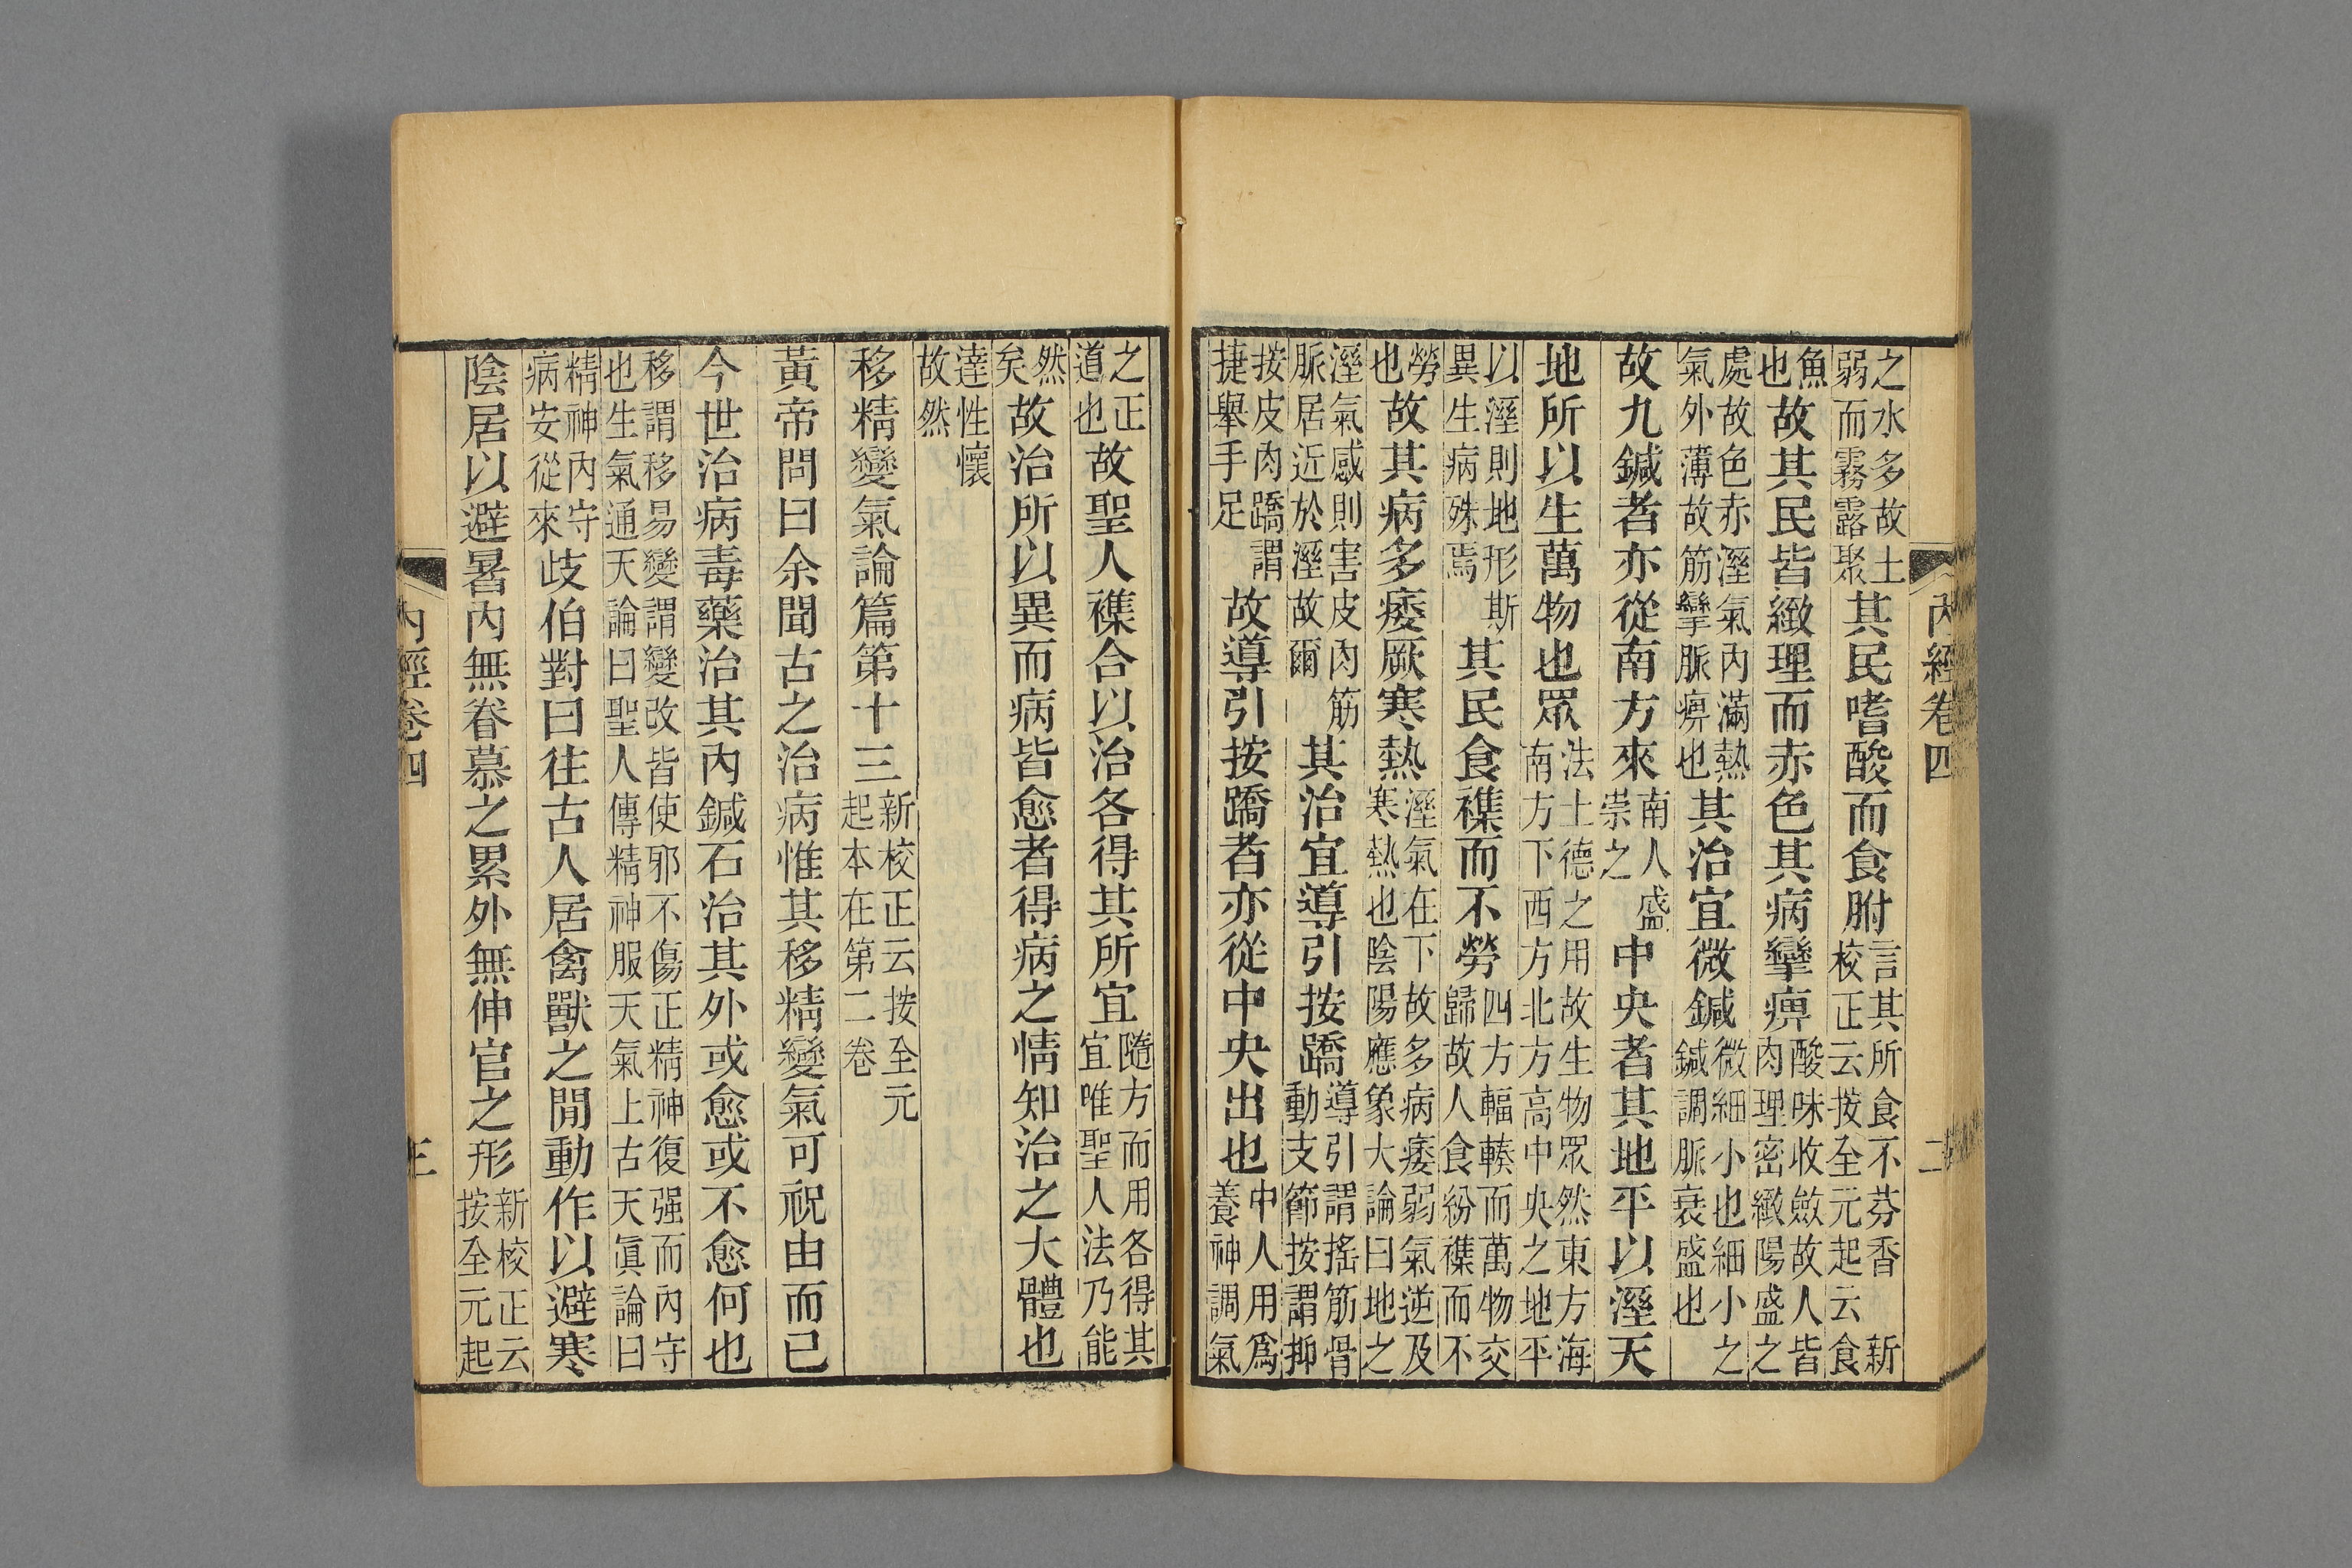 內經卷四 二
之水多故土弱而霧露聚其民嗜酸而食胕言其所食不芬香 新校正云按全元起云食
魚也故其民皆緻理而赤色其病攣痹酸味收斂故人皆肉理密緻陽盛之
處故色赤溼氣內滿熱氣外薄故筋攣脈痹也其治宜微鍼微細小也細小之鍼調脈衰盛也
故九鍼者亦從南方來南人盛崇之中央者其地平以溼天
地所以生萬物也眾法土德之用故生物眾然東方海南方下西方北方高中央之地平
以溼則地形斯異生病殊焉其民食襍而不勞四方輻輳而萬物交歸故人食紛襍而不
勞也故其病多痿厥寒熱溼氣在下故多病痿弱氣逆及寒熱也陰陽應象大論曰地之
溼氣感則害皮肉筋脈居近於溼故爾其治宜導引按蹻導引謂搖筋骨動支節按謂抑
按皮肉蹻謂捷舉手足故導引按蹻者亦從中央出也中人用爲養神調氣
之正道也故聖人襍合以治各得其所宜隨方而用各得其宜唯聖人法乃能
然矣故治所以異而病皆愈者得病之情知治之大體也
達性懷故然
移精變氣論篇第十三新校正云按全元起本在第二卷
黃帝問曰余聞古之治病惟其移精變氣可祝由而已
今世治病毒藥治其內鍼石治其外或愈或不愈何也
移謂移易變謂變改皆使邪不傷正精神復强而內守也生氣通天論曰聖人傳精神服天氣上古天眞論曰
精神內守病安從來歧伯對曰往古人居禽獸之閒動作以避寒
陰居以避暑內無眷慕之累外無伸官之形新校正云按全元起
內經卷四 三